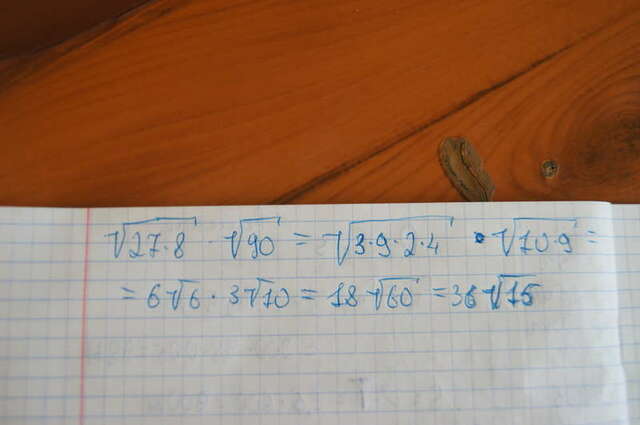 √27·8 · √90 = √3·9·2·4 · √10·9 =
= 6√6 · 3√10 = 18√60 = 36√15